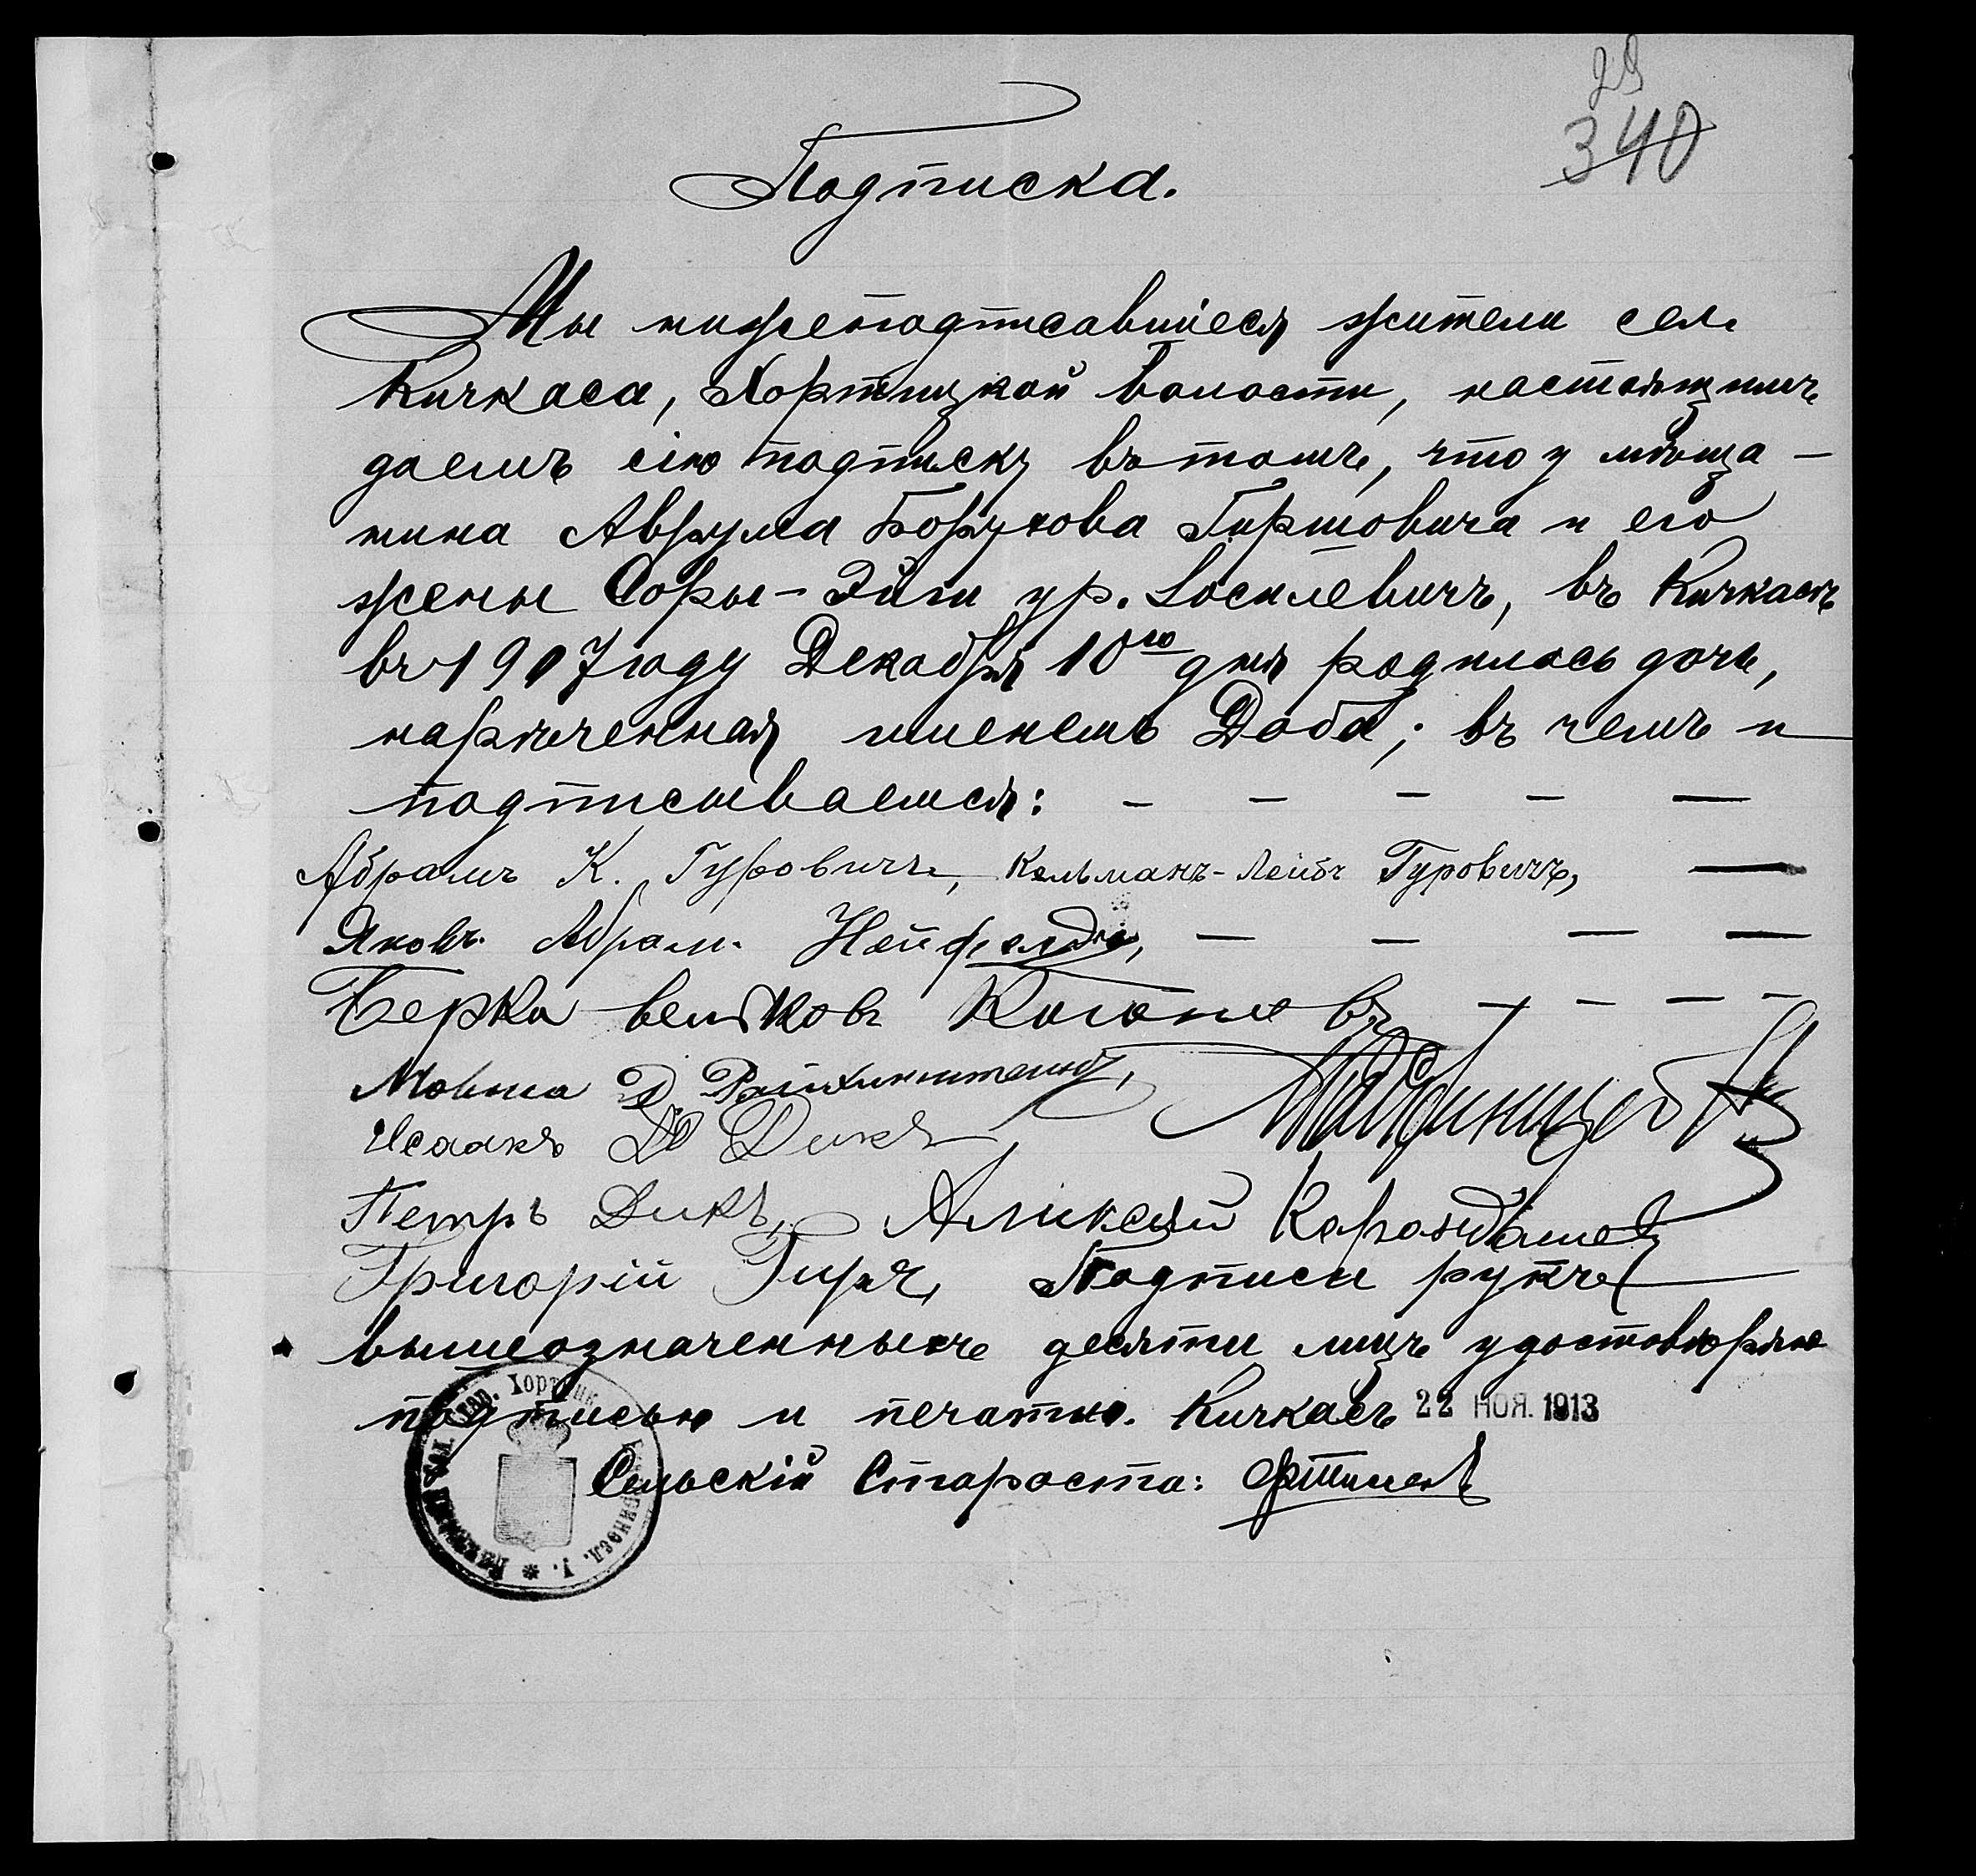 29
340
Подписка.
Мы нижеподписавшіеся жители сел.
Кичкаса, Хортицкой волости, настоящимъ
даемъ сію подписку въ томъ, что у мѣща-
нина Аврума Борухова Гиршовича и его
жены Соры-Эйги ур. Іосилевичъ, въ Кичкасѣ
въ 1907 году Декабря 10го дня родилась дочь,
нареченная именемъ Доба; въ чемъ и
подписываемся: - - - - -
Абрамъ К. Гуровичъ, Кельманъ-Лейбъ Гуровичъ, -
Яковъ Абрам. Нейфельдъ, - - - -
Берка Вельковъ - - - -
Мовша Д.
Исаакъ Дикъ,
Петръ Дикъ, Аликсей Карандашев
Григорій Подписи рукъ
вышеозначенныхъ десяти лицъ удостовѣряю
подписью и печатью. Кичкасъ 22 НОЯ. 1913
Сельскій Староста: